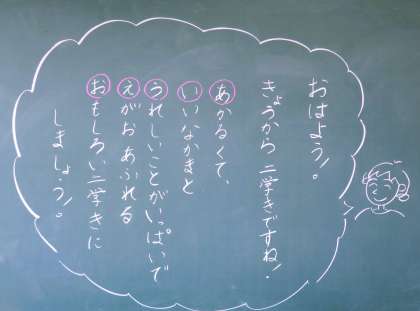 おはよう！。
きょうから 二学きですね！
あかるくて、
いいなかまと
うれしいことがいっぱいで
えがお あふれる
おもしろい二学きに
しましょう！。